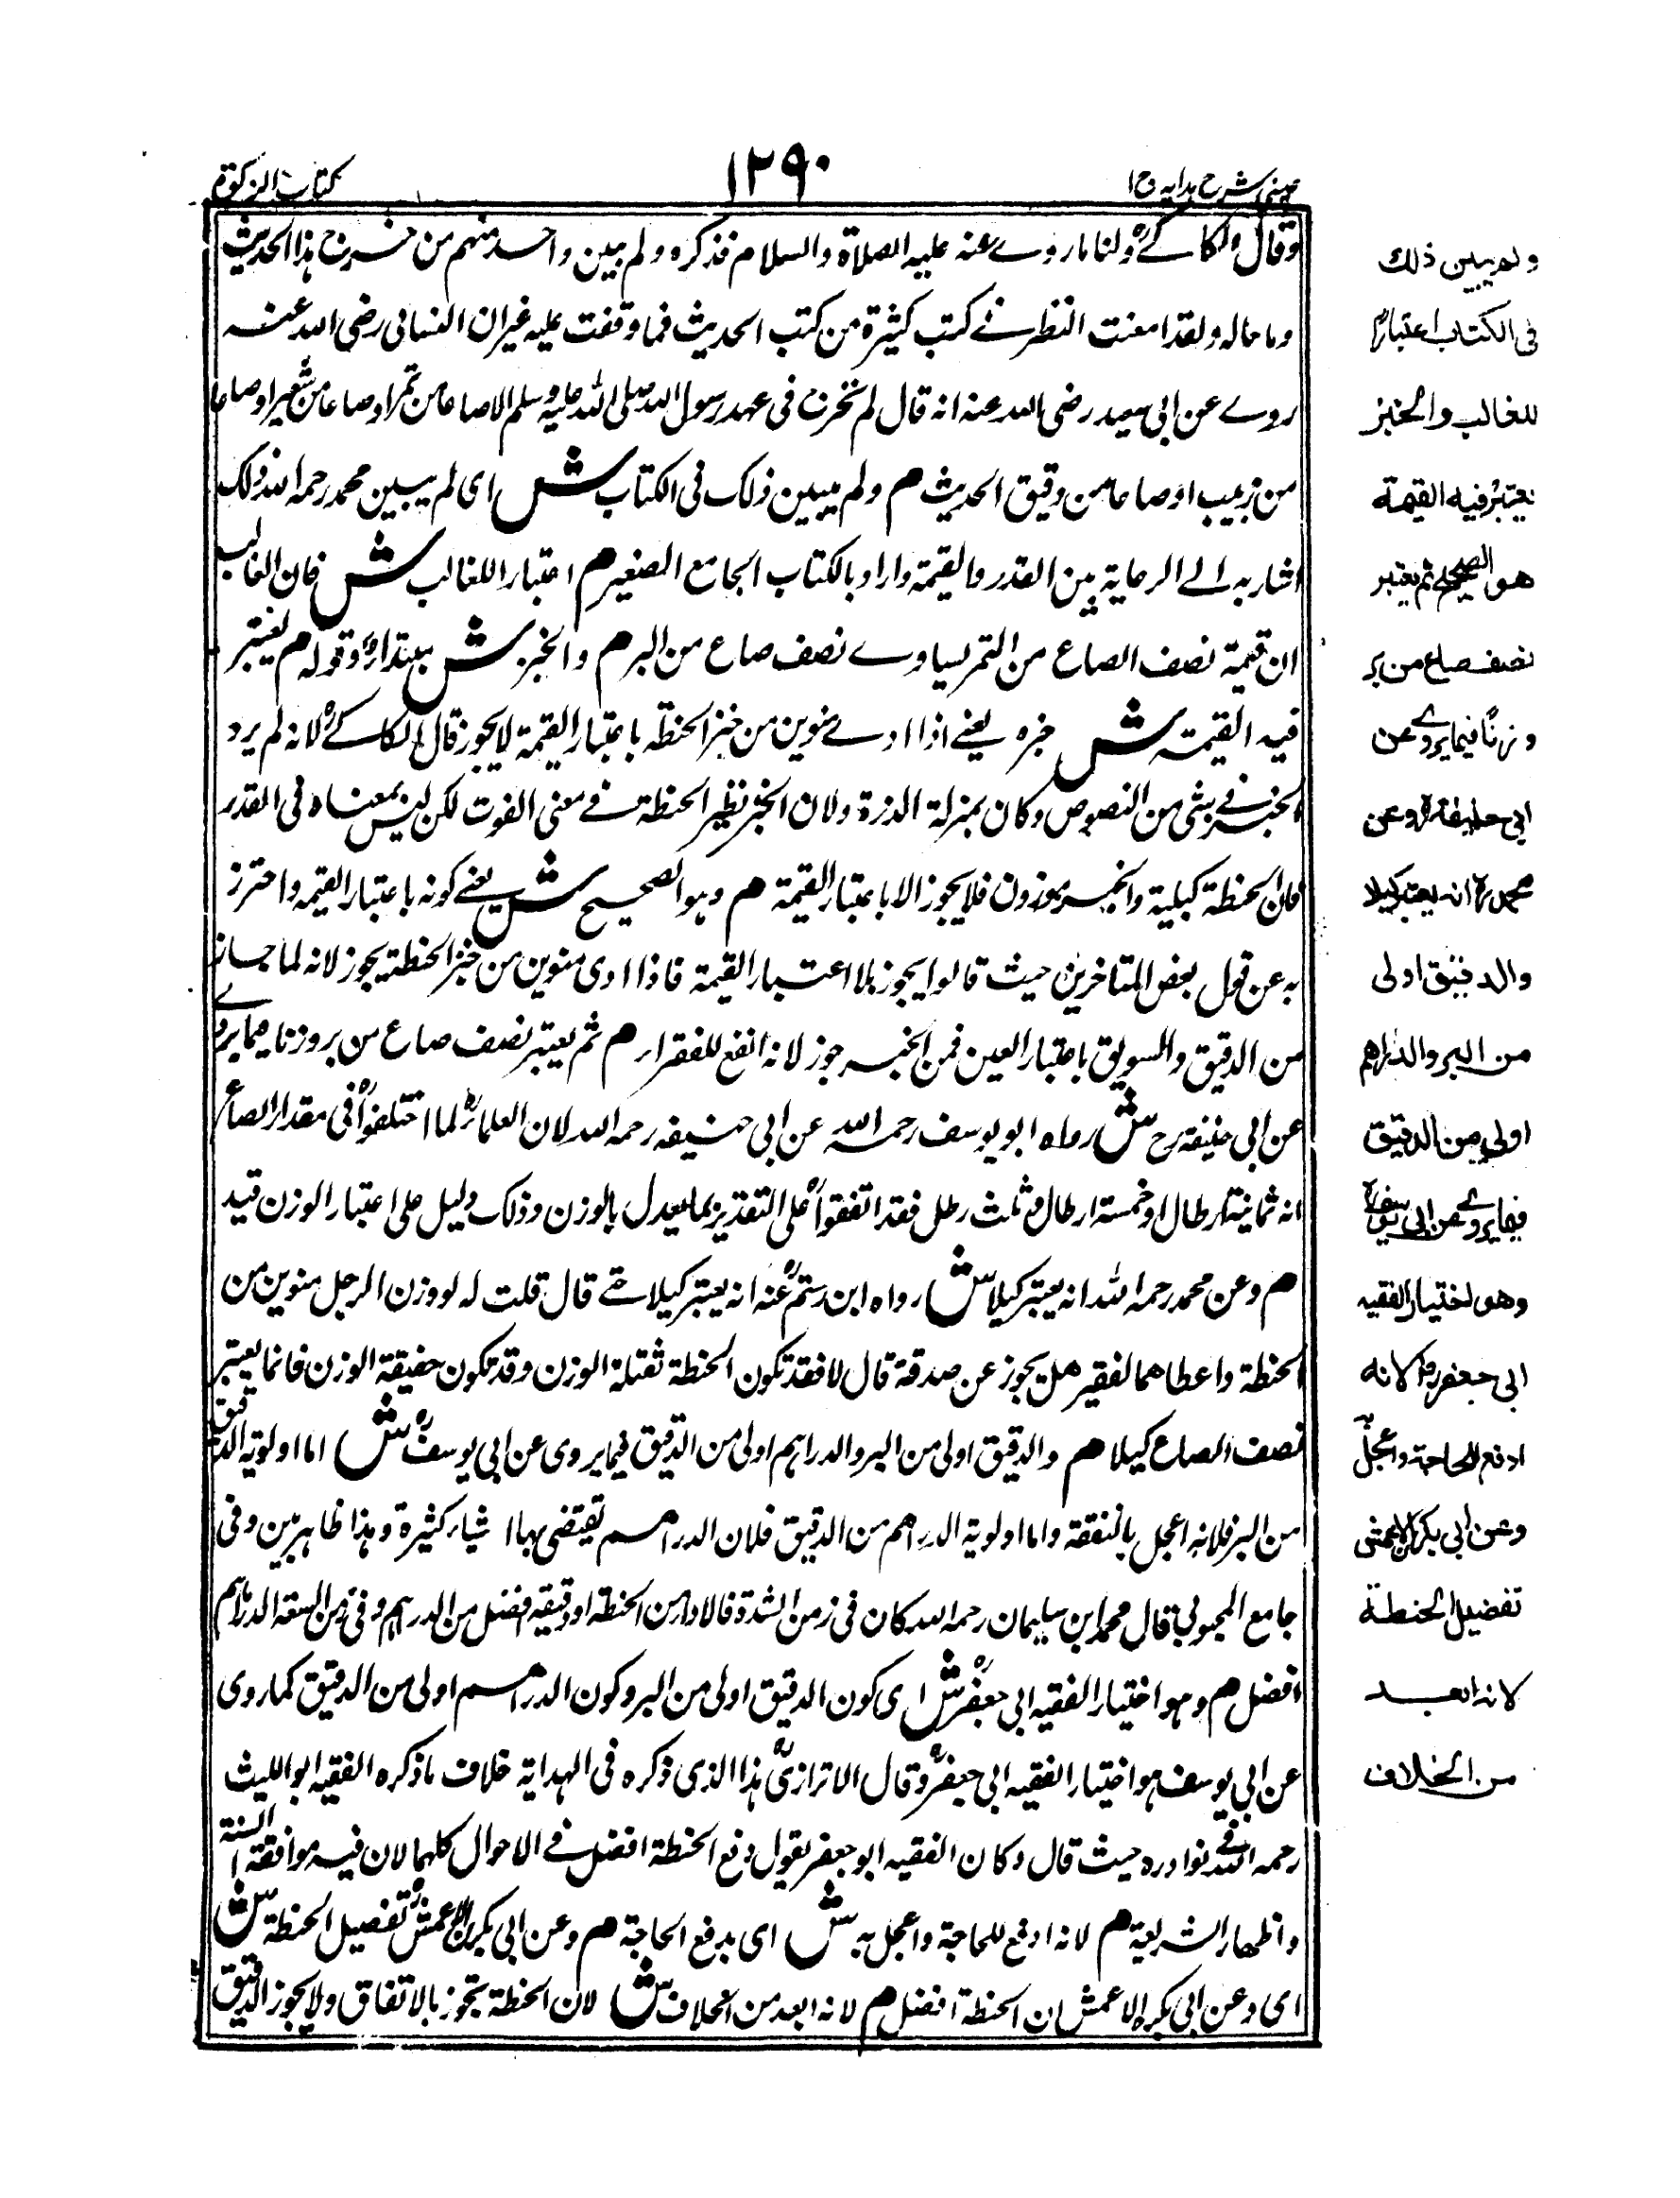 عینی شرح ہدایہ ج ١
١٢٩٠
کتاب الزکوة
وقال الكاكيؒ ولنا ما روے عنه عليه الصلاة والسلام فذكره ولم يبين واحد منهم من خرج هذا الحديث
وما حاله ولقد امعنت النظر في كتب كثيرة من كتب الحديث فما وقفت عليه غير ان النسائى رضى الله عنه
روے عن ابى سعيد رضى الله عنه انه قال لم نخرج فى عهد رسول الله صلى الله عليه وسلم الا صاعا من تمر او صاعا من شعير او صاعا
من زبيب او صاعا من دقيق الحديث م ولم يبين ذلك فى الكتاب ش اى لم يبين محمد رحمه الله ذلك
اشار به الے الرعاية بين القدر والقيمة واراد بالكتاب الجامع الصغير م اعتبارا للغالب ش فان الغالب
ان قيمة نصف الصاع من التمر يساوے نصف صاع من البر م والخبز ش مبتداء وقوله م يعتبر
فيه القيمة ش خبره يعنے اذا ادے منوين من خبز الحنطة باعتبار القيمة لا يجوز قال الكاكےؒ لانه لم يرد
الخبز فے شئ من النصوص وكان بمنزلة الذرة ولان الخبز نظير الحنطة فے معنى القوت لكن ليس بمعناه فى القدر
فان الحنطة كيلية والخبز موزون فلا يجوز الا باعتبار القيمة م وهو الصحيح ش يعنے كونه باعتبار القيمه واحترز
به عن قول بعض المتاخرين حيث قالوا يجوز بلا اعتبار القيمة فاذا ادى منوين من خبز الحنطة يجوز لانه لما جاز
من الدقيق والسويق باعتبار العين فمن الخبز جوز لانه انفع للفقراء م ثم يعتبر نصف صاع من بر وزنا فيما يروے
عن ابى حنيفة رح ش رواه ابو يوسف رحمه الله عن ابى حنيفه رحمه الله لان العلماءؒ لما اختلفوا فى مقدار الصاع
انه ثمانية ارطال او خمسة ارطال وثلث رطل فقد اتفقوا على التقدير بما يعدل بالوزن وذلك دليل على اعتبار الوزن فيه
م وعن محمد رحمه الله انه يعتبر كيلا ش رواه ابن رستمؒ عنه انه يعتبر كيلا حتے قال قلت له لو وزن الرجل منوين من
الحنطة واعطاهما لفقير هل يجوز عن صدقة قال لا فقد تكون الحنطة ثقيلة الوزن وقد تكون خفيفة الوزن فانما يعتبر
نصف الصاع كيلا م والدقيق اولى من البر والدراهم اولى من الدقيق فيما يروى عن ابى يوسفؒ ش اما اولوية الدقيق
من البر فلانه اعجل بالنفقة واما اولوية الدراهم من الدقيق فلان الدراهم تقتضى بها اشياء كثيرة وهذا ظاهر بين وفى
جامع المحبوبى قال محمد ابن سليمان رحمه الله كان فى زمن الشدة فالاداء من الحنطة او دقيقه افضل من الدراهم وفى زمن السعة الدراهم
افضل م وهو اختيار الفقيه ابى جعفرؒ ش اى كون الدقيق اولى من البر وكون الدراهم اولى من الدقيق كما روى
عن ابى يوسف هو اختيار الفقيه ابى جعفرؒ وقال الاترازىؒ هذا الذى ذكره فى الهداية خلاف ما ذكره الفقيه ابو الليث
رحمه الله فے نوادره حيث قال وكان الفقيه ابو جعفر يقول دفع الحنطة افضل فے الاحوال كلها لان فيه موافقة السنة
واظهار الشريعة م لانه ادفع للحاجة واعجل به ش اى بدفع الحاجة م وعن ابى بكر الاعمشؒ تفضيل الحنطة ش
اى وعن ابى بكر الاعمش ان الحنطة افضل م لانه ابعد من الخلاف ش لان الحنطة تجوز بالاتفاق ولا يجوز الدقيق
ولم يبين ذلك
فى الكتاب اعتبارًا
للغالب والخبز
يعتبر فيه القيمة
هو الصحيح ثم يعتبر
نصف صاع من بر
وزنًا فيما يروے عن
ابى حنيفةؒ وعن
محمدؒ انه يعتبر كيلا
والدقيق اولى
من البر والدراهم
اولى من الدقيق
فيما يروے عن ابى يوسفؒ
وهو اختيار الفقيه
ابى جعفرؒ لانه
ادفع للحاجة واعجل به
وعن ابى بكر الاعمش
تفضيل الحنطة
لانه ابعد
من الخلاف